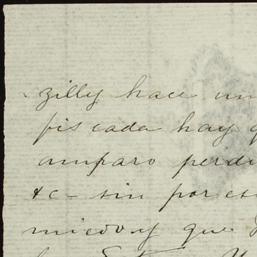 zilly hace un
piscada hay
amparo perdi
&c - sin por es
miedo y que